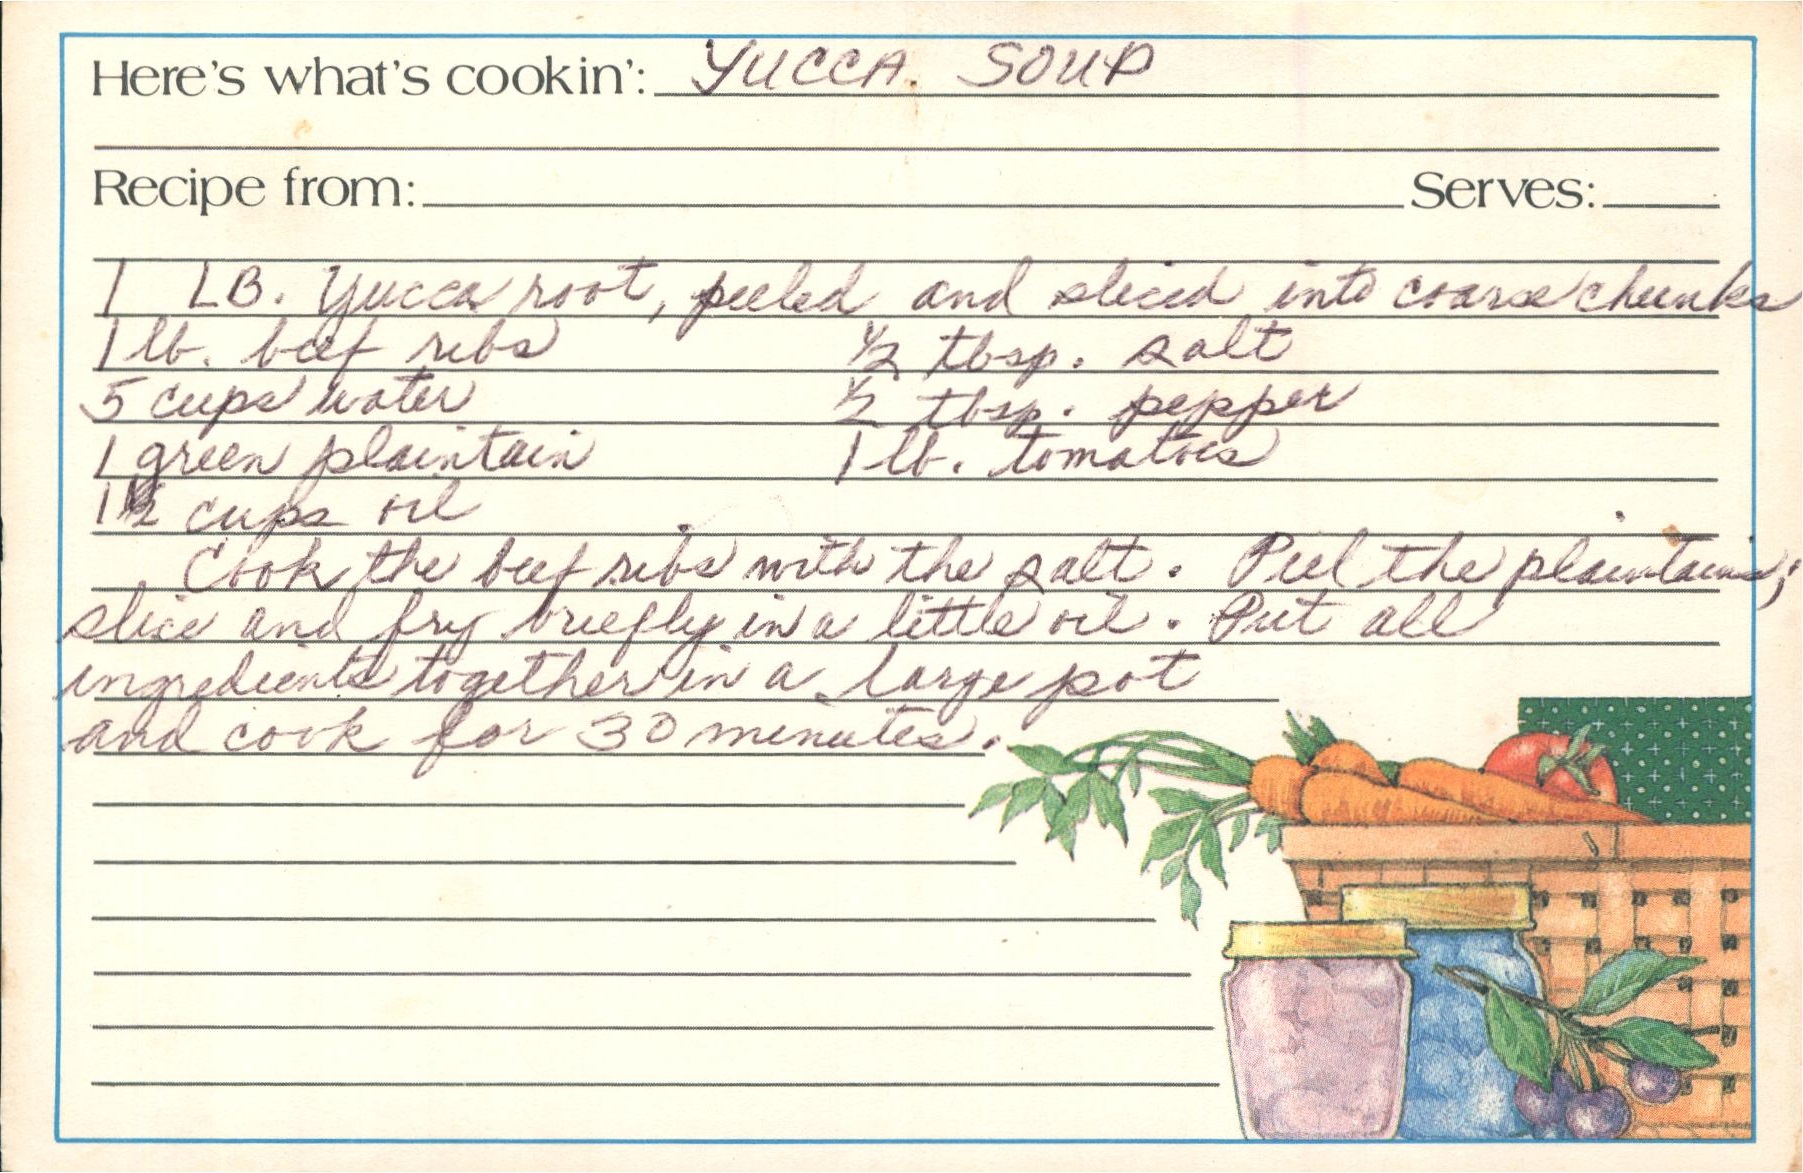 Here's what's cookin': YUCCA SOUP
Recipe from: Serves:
1 LB. Yucca root, peeled and sliced into coarse chunks
1 lb. beef ribs 1/2 tbsp. salt
5 cups water 1/2 tbsp. pepper
1 green plaintain 1 lb. tomatoes
1 1/2 cups oil
Cook the beef ribs with the salt. Peel the plaintains;
slice and fry briefly in a little oil. Put all
ingredients together in a large pot
and cook for 30 minutes.